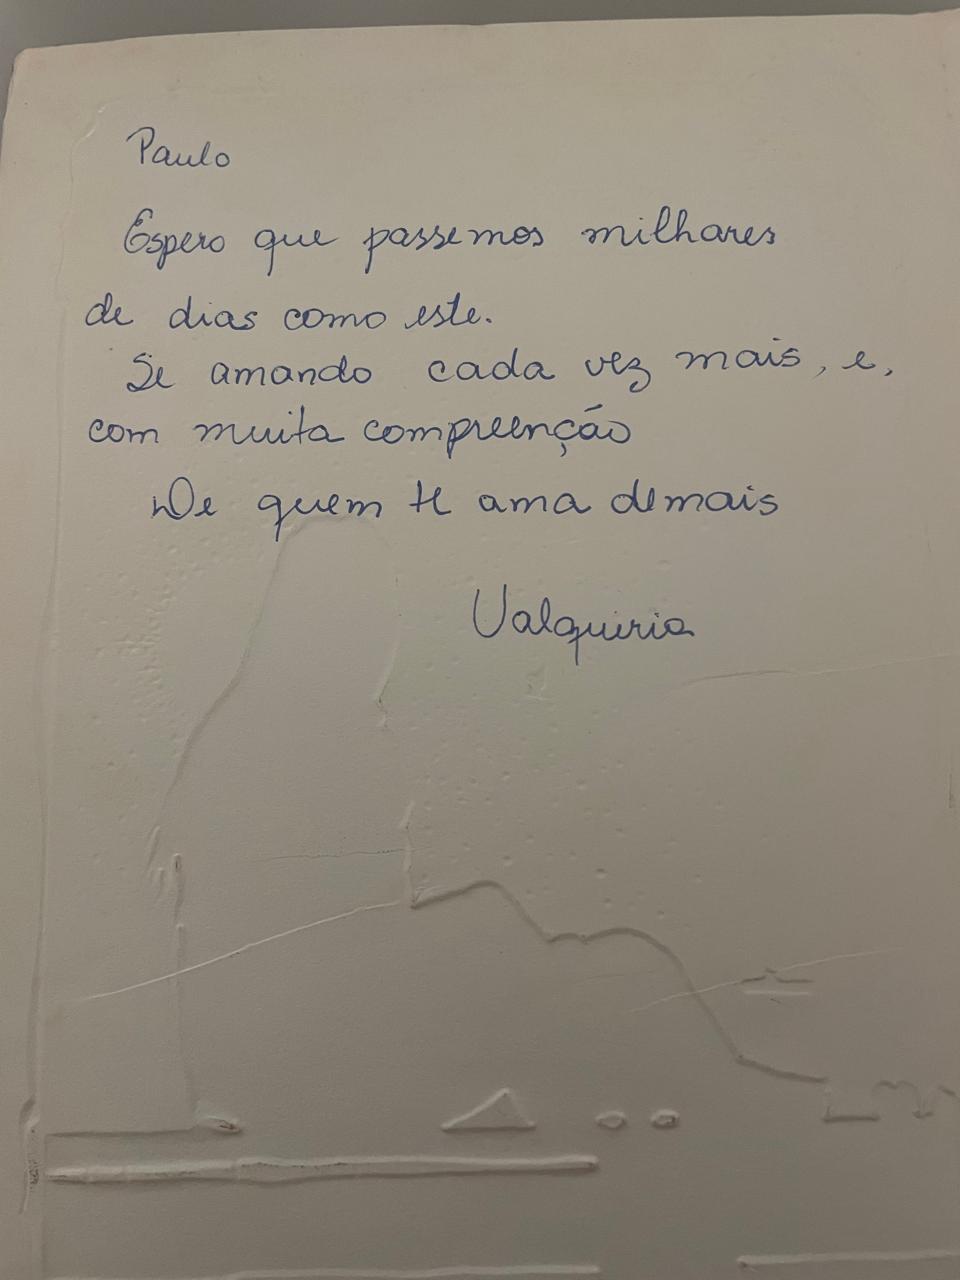 Paulo
Espero que passemos milhares
de dias como este.
Se amando cada vez mais, e,
com muita compreenção
De quem te ama demais
Valquiria